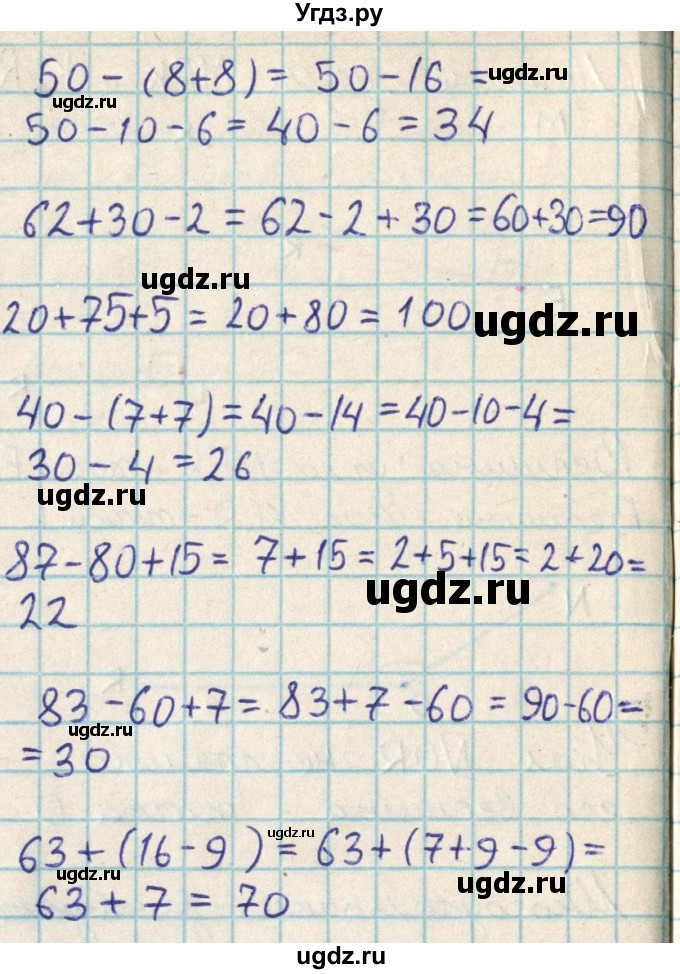 Угдз.ру
50 - (8+8) = 50 - 16 =
ugdz.ru
ugdz.ru
50 - 10 - 6 = 40 - 6 = 34
62 + 30 - 2 = 62 - 2 + 30 = 60+30=90
ugdz.ru
20+75+5 = 20+80 = 100
ugdz.ru
40 - (7+7) = 40 - 14 = 40 - 10 - 4 =
30 - 4 = 26
ugdz.ru
87 - 80 + 15 = 7 + 15 = 2+5+15 = 2+20=
ugdz.ru
22
83 - 60 + 7 = 83 + 7 - 60 = 90 - 60 =
ugdz.ru
= 30
ugdz.ru
63 + (16 - 9) = 63 + (7+9-9) =
ugdz.ru
ugdz.ru
63 + 7 = 70
ugdz.ru